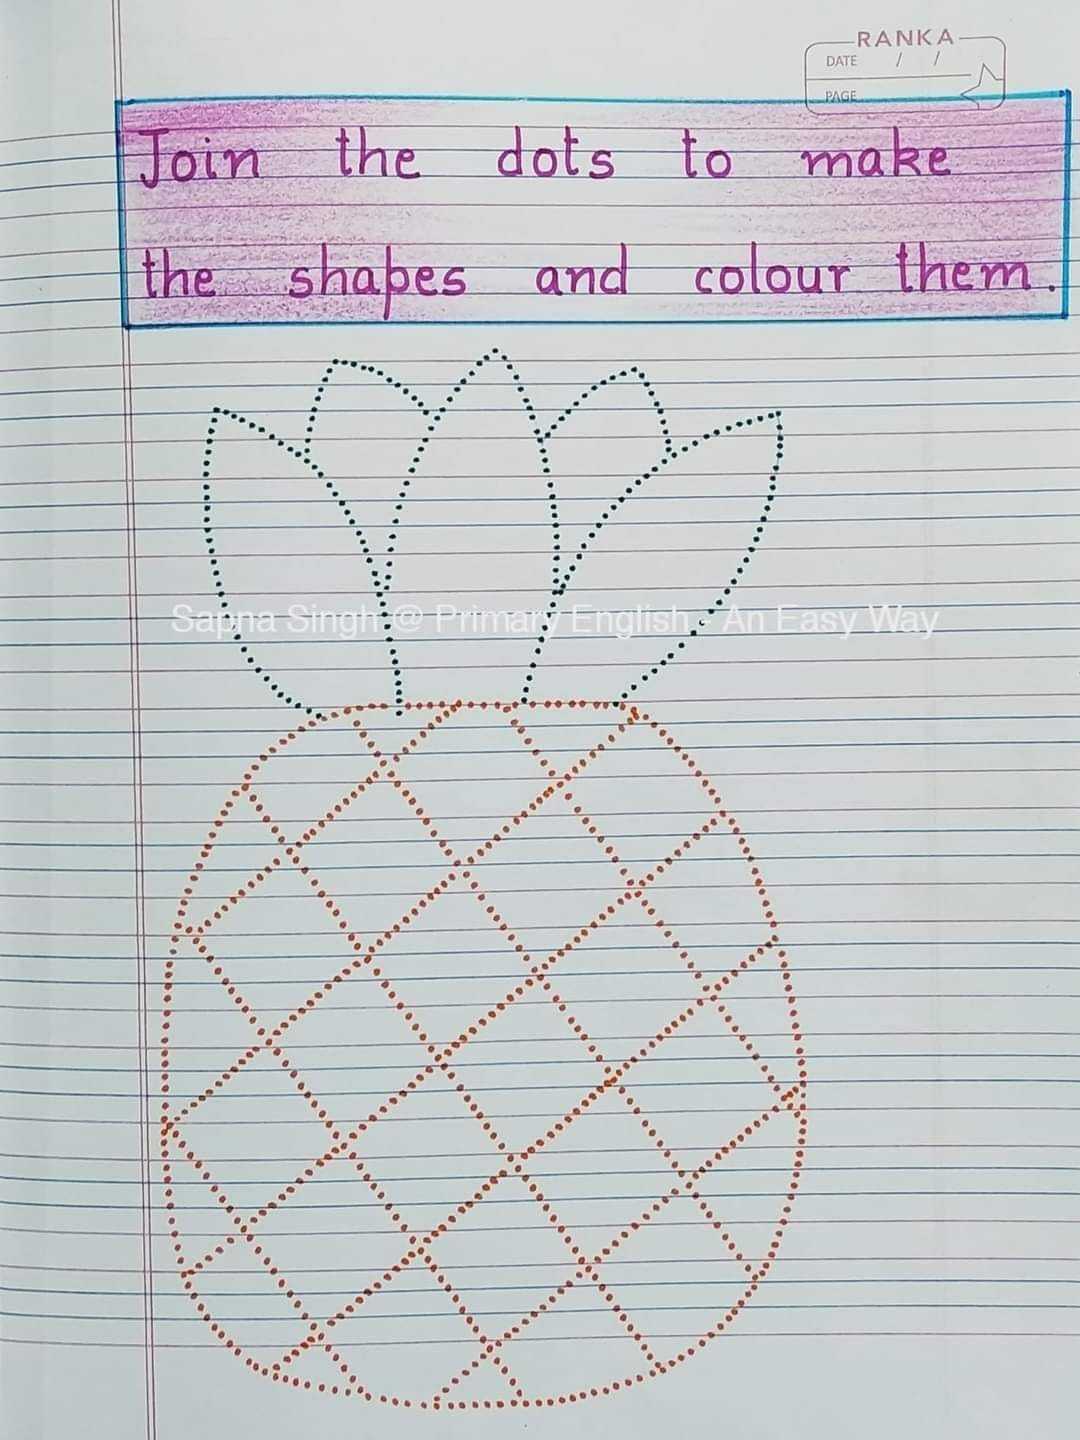 RANKA
DATE / /
PAGE
Join the dots to make
the shapes and colour them.
Sapna Singh @ Primary English - An Easy Way